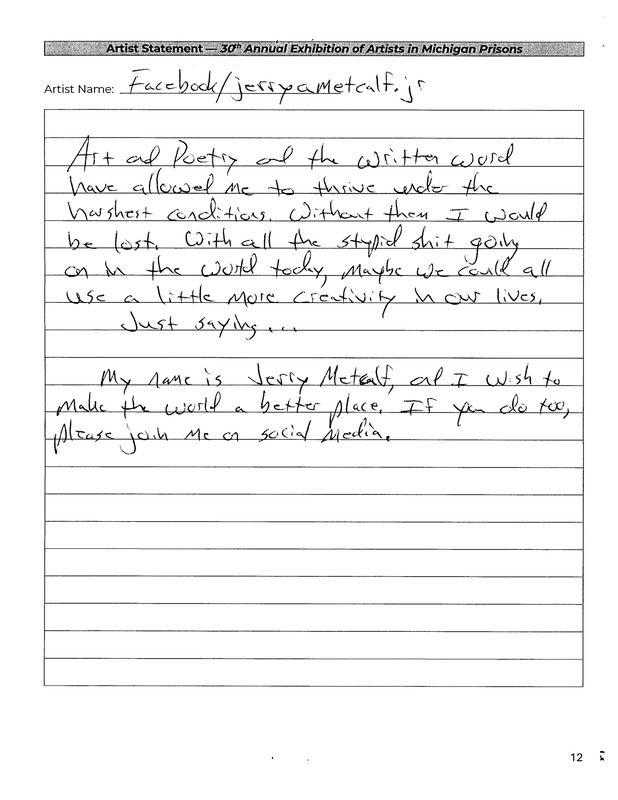 Artist Statement — 30th Annual Exhibition of Artists in Michigan Prisons
Artist Name: Facebook/jerryametcalf.jr
Art and Poetry and the written word
have allowed me to thrive under the
harshest conditions. Without them I would
be lost. With all the stupid shit going
on in the world today, Maybe we could all
use a little more creativity in our lives.
Just saying...
My name is Jerry Metcalf, and I wish to
make the world a better place. If you do too,
please join me on social media.
12